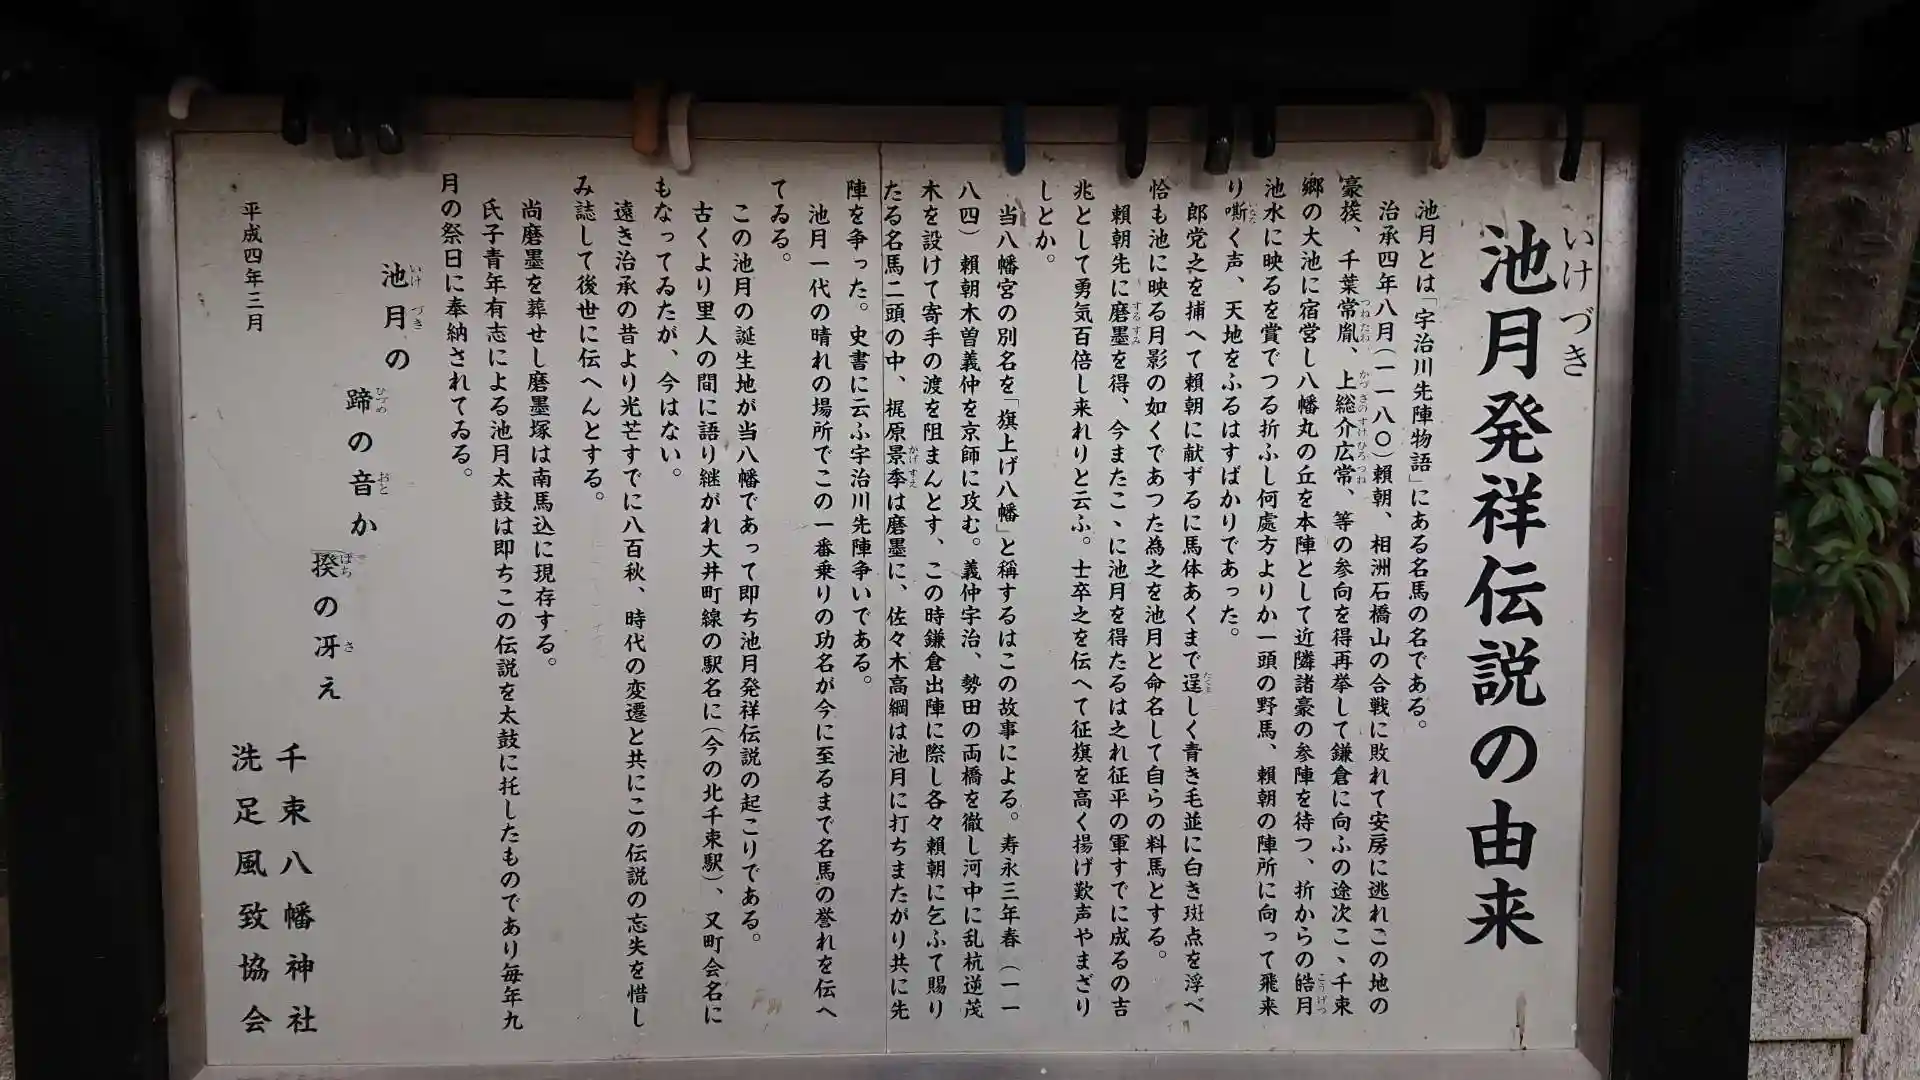 池月発祥伝説の由来
いけづき
池月とは「宇治川先陣物語」にある名馬の名である。
治承四年八月(一一八〇)頼朝、相洲石橋山の合戦に敗れて安房に逃れこの地の
豪族、千葉常胤、上総介広常、等の参向を得再挙して鎌倉に向ふの途次こヽ千束
郷の大池に宿営し八幡丸の丘を本陣として近隣諸豪の参陣を待つ、折からの皓月
池水に映るを賞でつる折ふし何處方よりか一頭の野馬、頼朝の陣所に向って飛来
り嘶く声、天地をふるはすばかりであった。
郎党之を捕へて頼朝に献ずるに馬体あくまで逞しく青き毛並に白き斑点を浮べ
恰も池に映る月影の如くであつた為之を池月と命名して自らの料馬とする。
頼朝先に磨墨を得、今またこヽに池月を得たるは之れ征平の軍すでに成るの吉
兆として勇気百倍し来れりと云ふ。士卒之を伝へて征旗を高く揚げ歓声やまざり
しとか。
当八幡宮の別名を「旗上げ八幡」と称するはこの故事による。寿永三年春(一一
八四)頼朝木曽義仲を京師に攻む。義仲宇治、勢田の両橋を徹し河中に乱杭逆茂
木を設けて寄手の渡を阻まんとす、この時鎌倉出陣に際し各々頼朝に乞ふて賜り
たる名馬二頭の中、梶原景季は磨墨に、佐々木高綱は池月に打ちまたがり共に先
陣を争った。史書に云ふ宇治川先陣争いである。
池月一代の晴れの場所でこの一番乗りの功名が今に至るまで名馬の誉れを伝へ
てゐる。
この池月の誕生地が当八幡であって即ち池月発祥伝説の起こりである。
古くより里人の間に語り継がれ大井町線の駅名に(今の北千束駅)、又町会名に
もなってゐたが、今はない。
遠き治承の昔より光芒すでに八百秋、時代の変遷と共にこの伝説の忘失を惜し
み誌して後世に伝へんとする。
尚磨墨を葬せし磨墨塚は南馬込に現存する。
氏子青年有志による池月太鼓は即ちこの伝説を太鼓に托したものであり毎年九
月の祭日に奉納されてゐる。
池月の
蹄の音か
揆の冴え
千束八幡神社
洗足風致協会
平成四年三月